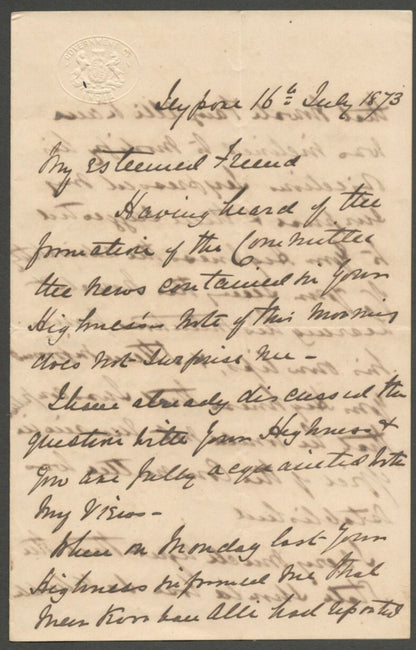 GOVERNMENT OF
Jeypore 16th July 1873
My Esteemed Friend
Having heard of the
formation of the Committee
the news contained in Your
Highness's note of this Morning
does not Surprise me –
I have already discussed the
question with Your Highness &
you are fully acquainted with
My Views –
When on Monday last Your
Highness informed me that
Meer Korban Alli had reported